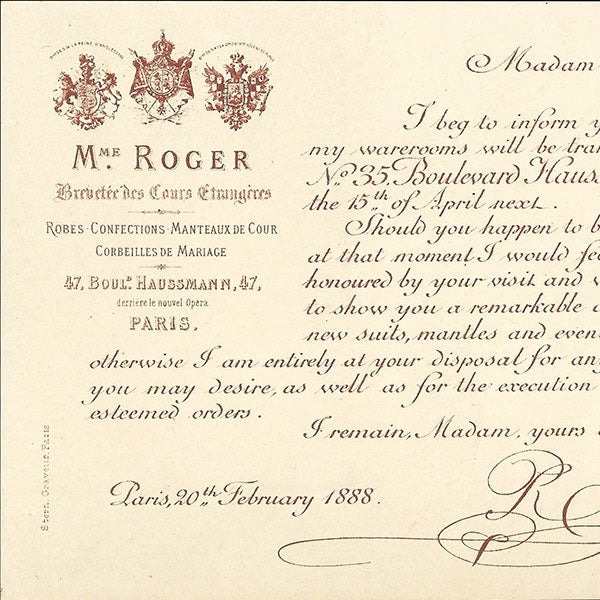 Mme Roger
Brevetée des Cours Etrangères
Robes · Confections · Manteaux de Cour
Corbeilles de Mariage
47, BoulD. Haussmann, 47,
derrière le nouvel Opéra
PARIS.
Madam
I beg to inform y
my warerooms will be tra
No. 35, Boulevard Hauss
the 15th of April next.
Should you happen to b
at that moment I would fe
honoured by your visit and
to show you a remarkable
new suits, mantles and even
otherwise I am entirely at your disposal for an
you may desire, as well as for the execution
esteemed orders.
I remain, Madam, yours
Paris, 20th February 1888.
R
Stern Graveur Paris